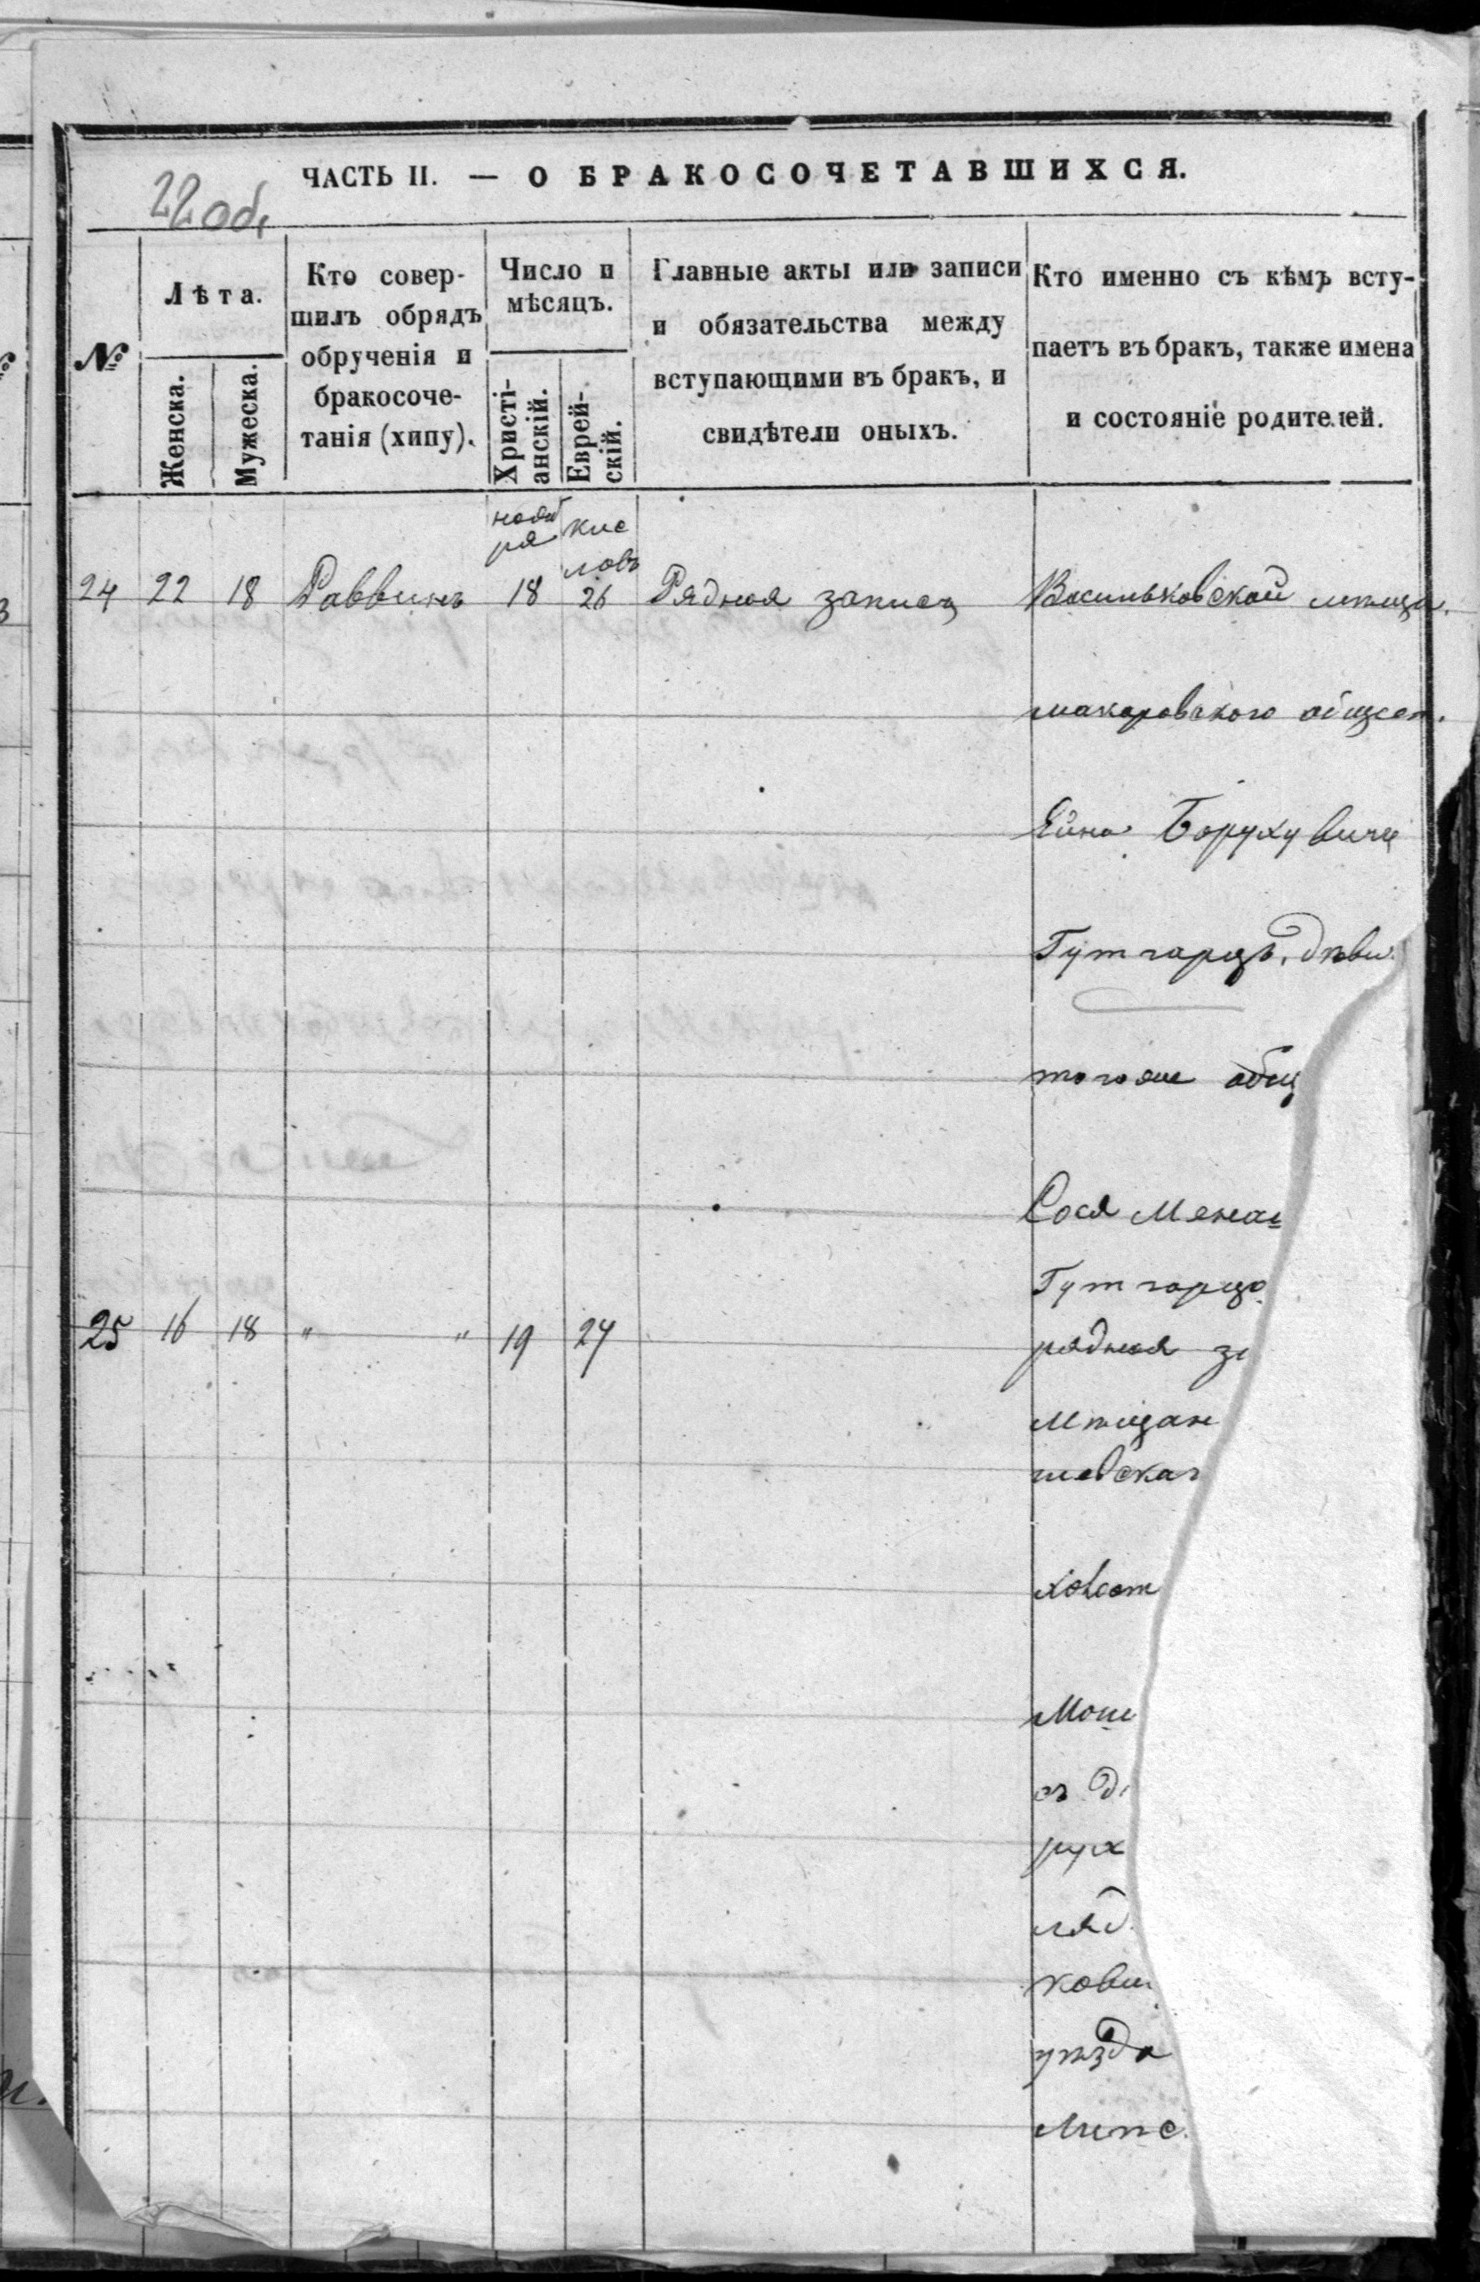 ЧАСТЬ II. — О БРАКОСОЧЕТАВШИХСЯ.
22 об.
№
Лѣта.
Женска.
Мужеска.
Кто совер-
шилъ обрядъ
обрученія и
бракосоче-
танія (хипу).
Число и
мѣсяцъ.
Христі-
анскій.
Еврей-
скій.
Главные акты или записи
и обязательства между
вступающими въ бракъ, и
свидѣтели оныхъ.
Кто именно съ кѣмъ всту-
паетъ въ бракъ, также имена
и состояніе родителей.
нояб
ря
кис
ловъ
24 22 18 Раввинъ 18 26 Рядная запись Васильковской мѣщ.
макаровского общест.
Боруховичъ
Гутгарцъ, дѣви.
тогоже общ
Сося Мена
Гутгарцъ
25 16 18 " " 19 27 рядная за
Мѣщан
шевска
хвост
Мош
съ д
рух
ляд
кови
уѣзда
Липе